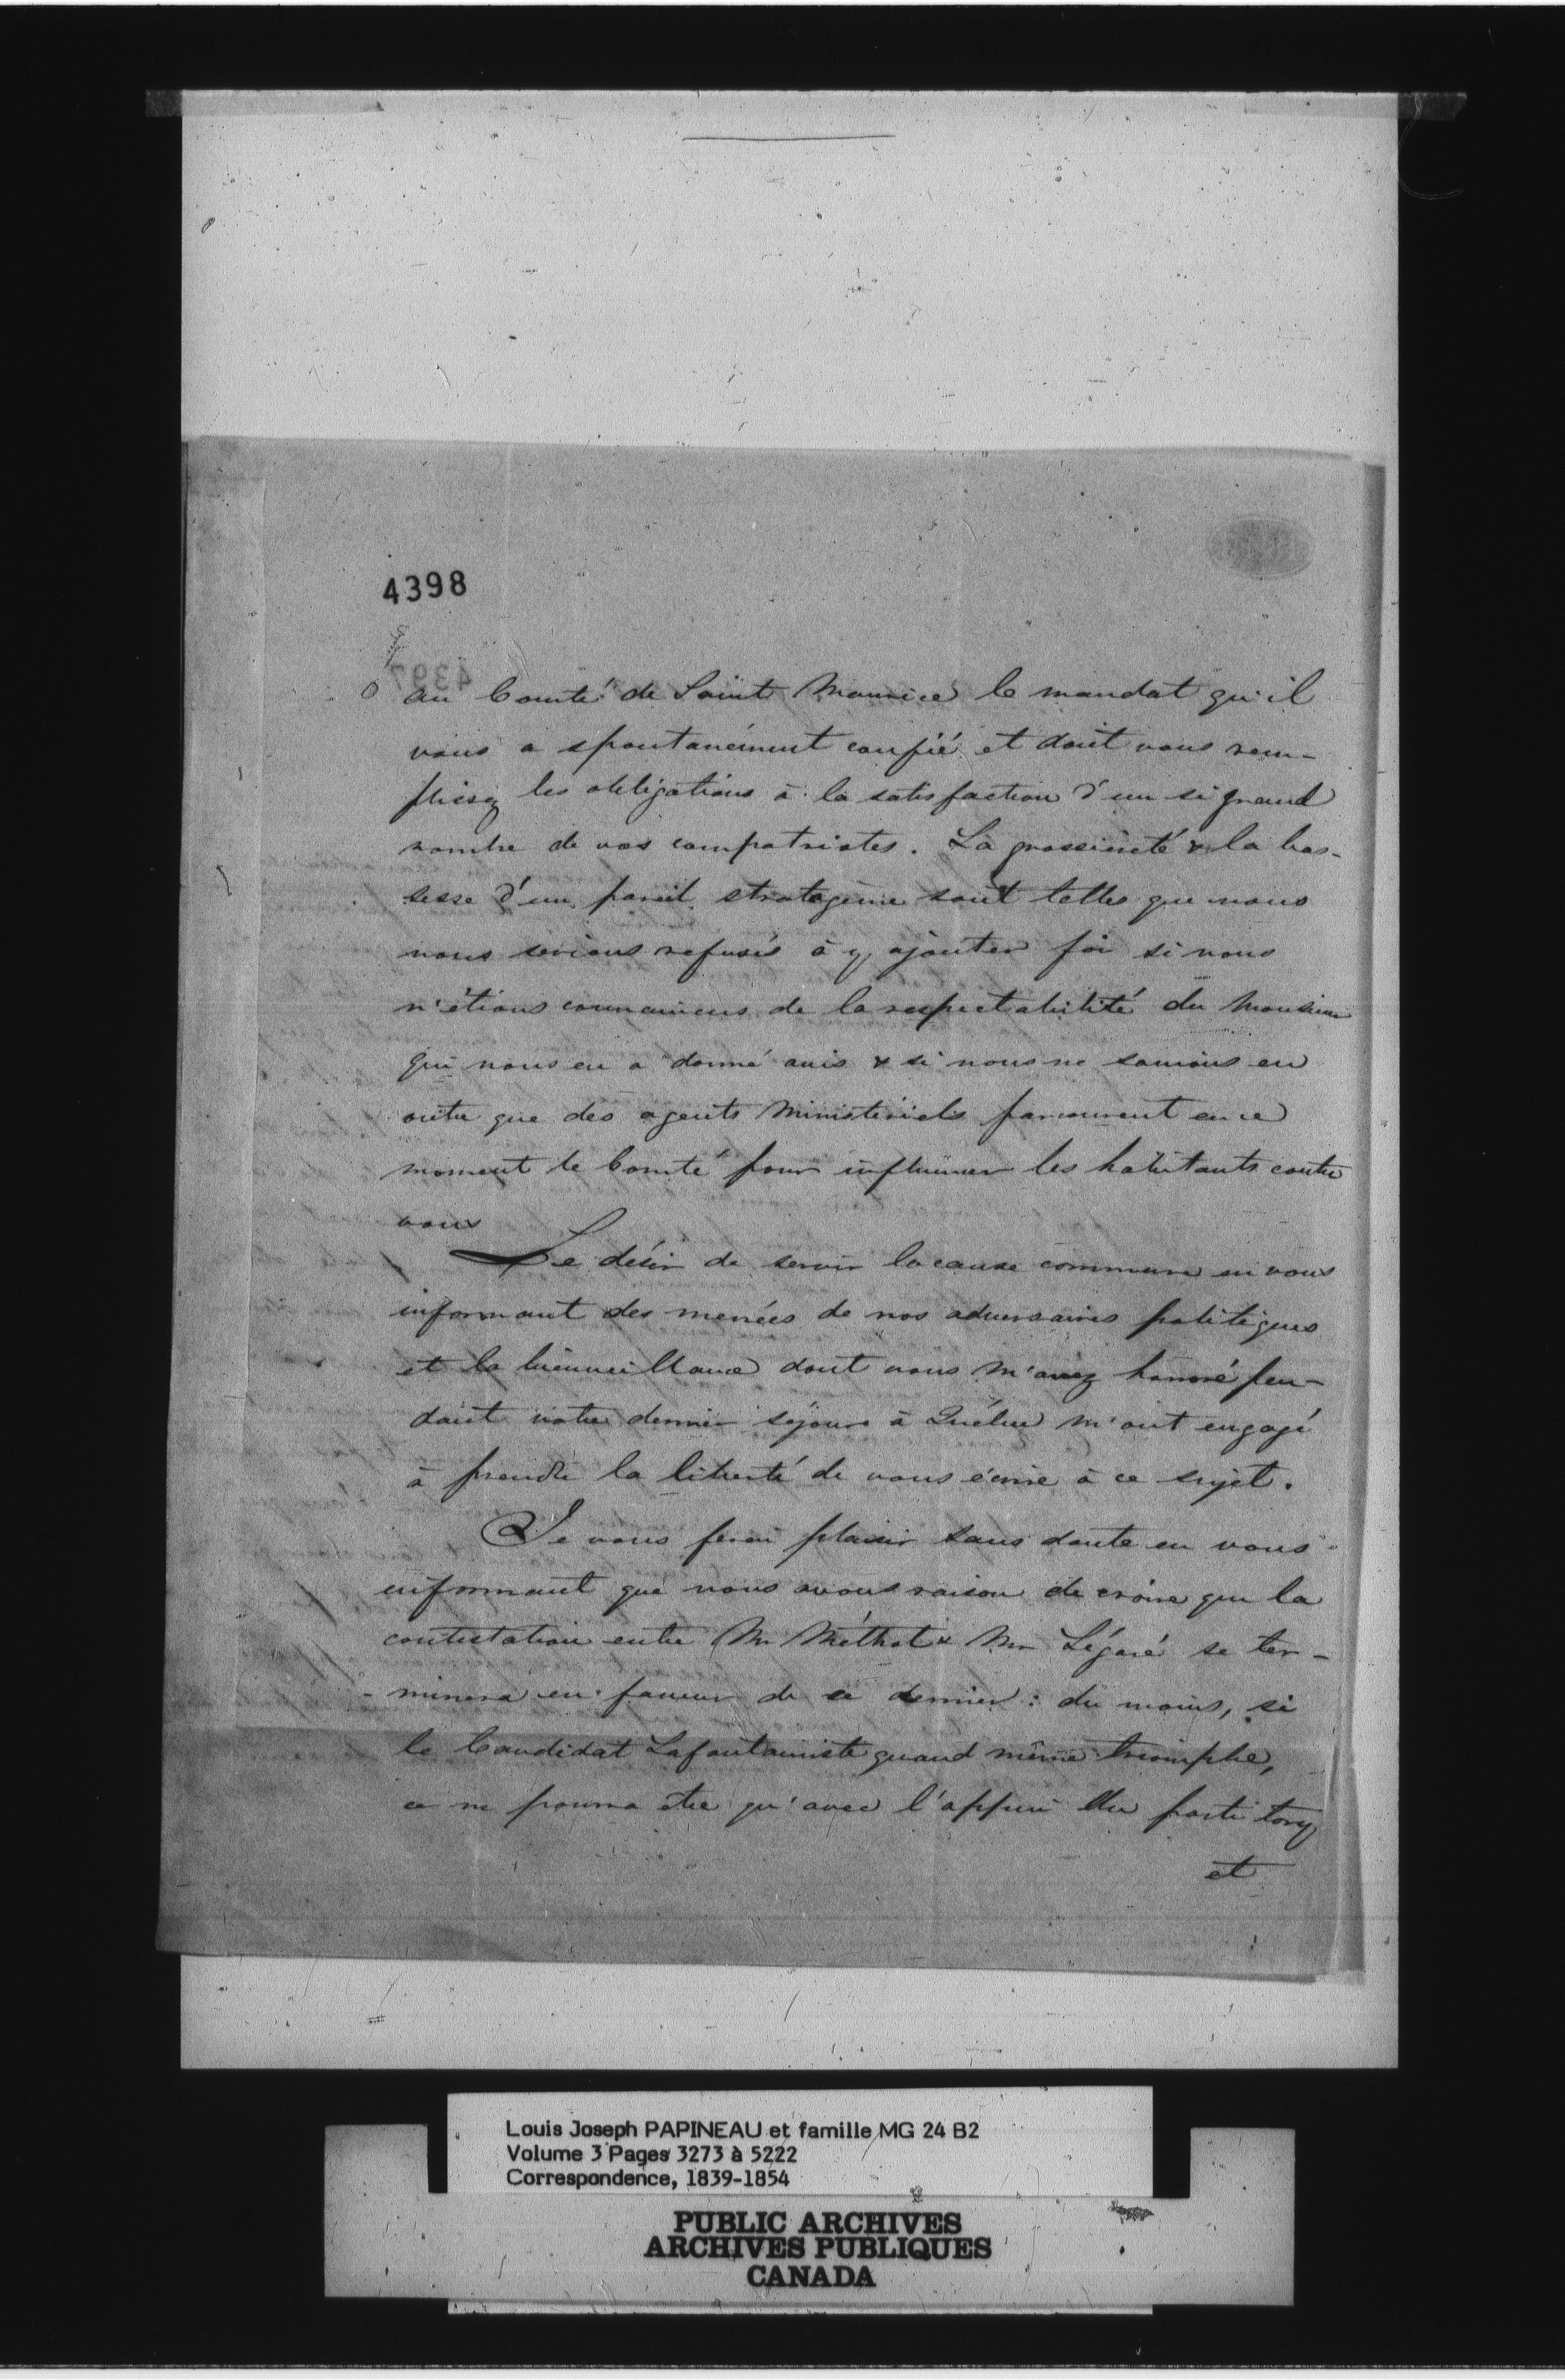 4398
au Comté de Saint Maurice le mandat qu'il
vous a spontanément confié et dont vous rem-
plissez les obligations à la satisfaction d'un si grand
nombre de vos compatriotes. La grossièreté & la bas-
sesse d'un pareil stratagème sont telles que nous
nous serions refusés à y ajouter foi si nous
n'étions convaincus de la respectabilité du Monsieur
qui nous en a donné avis & si nous ne savions en
outre que des agents Ministériels parcourent en ce
moment le Comté pour influencer les habitants contre
vous
Le désir de servir la cause commune en vous
informant des menées de nos adversaires politiques
et la bienveillance dont vous m'avez honoré pen-
dant votre dernier séjour à Québec m'ont engagé
à prendre la liberté de vous écrire à ce sujet.
Je vous ferai plaisir sans doute en vous
informant que nous avons raison de croire que la
contestation entre Mr Méthot & Mr Légaré se ter-
minera en faveur de ce dernier : du moins, si
le Candidat Lafontainiste quand même triomphe,
ce ne pourra être qu'avec l'appui du parti tory
et
Louis Joseph PAPINEAU et famille MG 24 B2
Volume 3 Pages 3273 à 5222
Correspondence, 1839-1854
PUBLIC ARCHIVES
ARCHIVES PUBLIQUES
CANADA